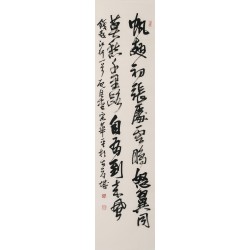 帆翅初張處雲鵬怒翼同
莫愁千里路自有到来風
錢起江行一首